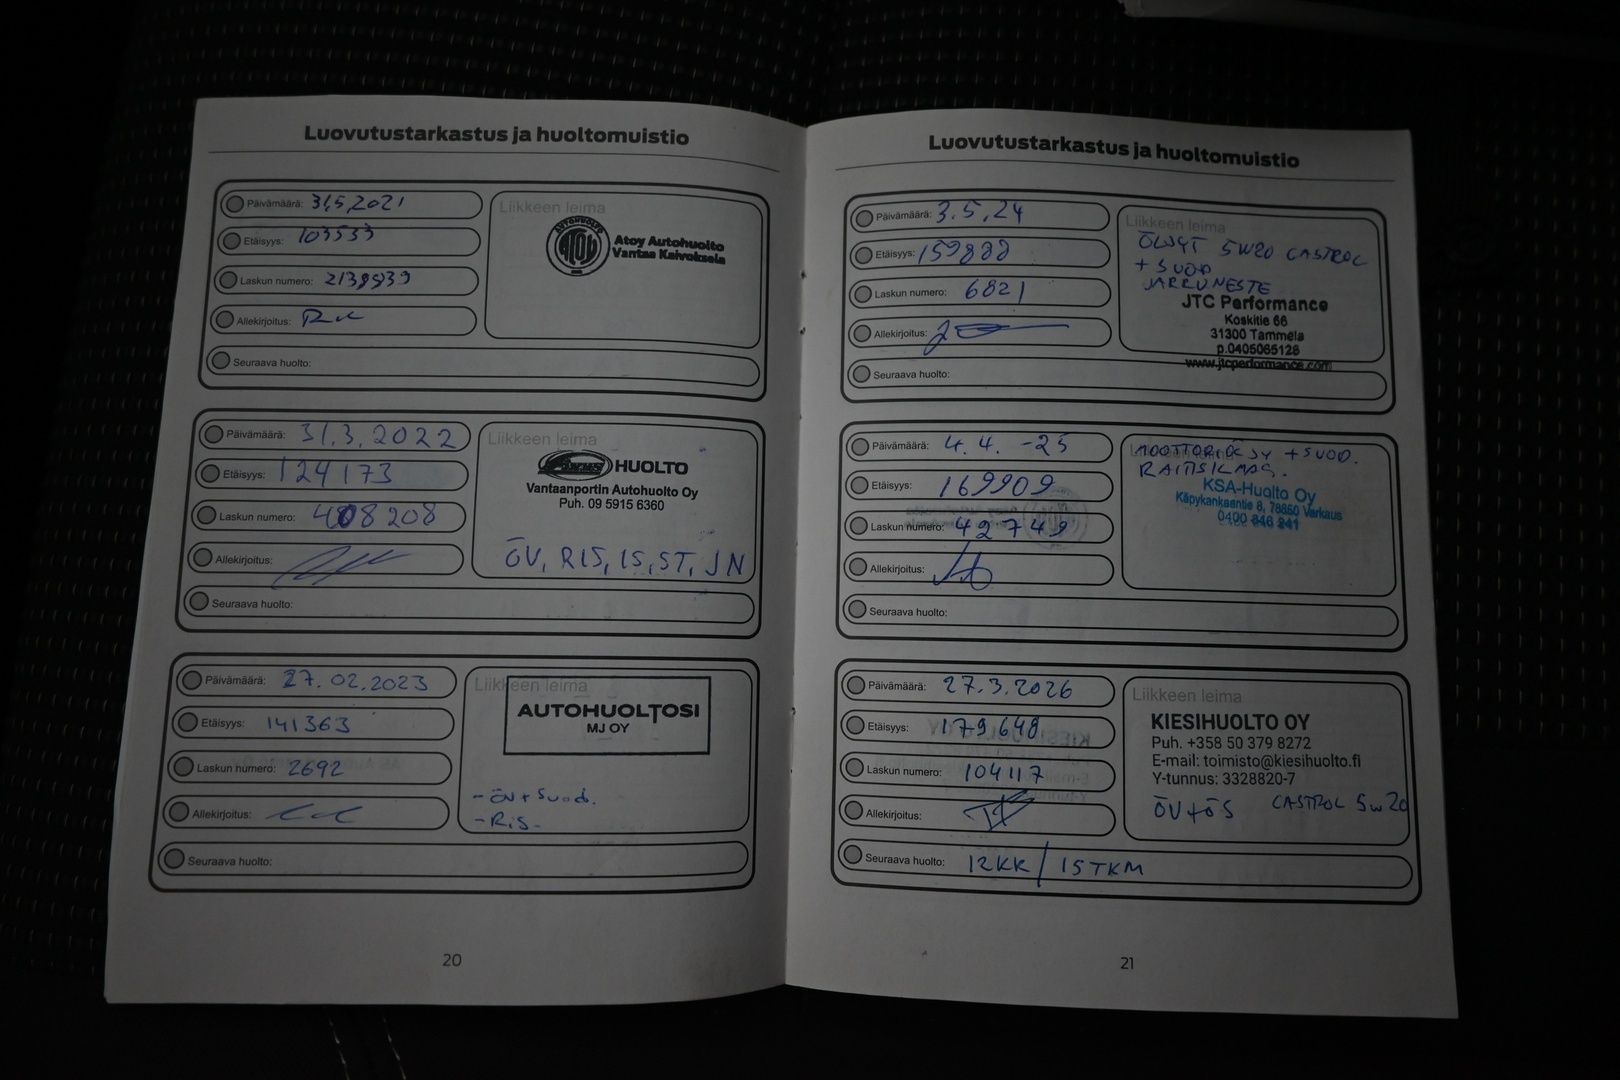 Luovutustarkastus ja huoltomuistio
Päivämäärä: 31.5.2021
Etäisyys: 103533
Laskun numero: 2138939
Allekirjoitus:
Seuraava huolto:
Liikkeen leima
AUTOHUOLTO
ATOY
Atoy Autohuolto
Vantaa Kaivoksela
Päivämäärä: 31.3.2022
Etäisyys: 124173
Laskun numero: 408208
Allekirjoitus:
Seuraava huolto:
Liikkeen leima
HUOLTO
Vantaanportin Autohuolto Oy
Puh. 09 5915 6360
ÖV, RIS, IS, ST, JN
Päivämäärä: 27.02.2023
Etäisyys: 141363
Laskun numero: 2692
Allekirjoitus:
Seuraava huolto:
Liikkeen leima
AUTOHUOLTOSI
MJ OY
- ÖV + Suod.
- RIS -
20
Luovutustarkastus ja huoltomuistio
Päivämäärä: 3.5.24
Etäisyys: 159888
Laskun numero: 6821
Allekirjoitus:
Seuraava huolto:
Liikkeen leima
ÖLJYT 5W20 CASTROL
+ SUOD
JARRUNESTE
JTC Performance
Koskitie 66
31300 Tammela
p.0405065128
www.jtcperformance.com
Päivämäärä: 4.4. -25
Etäisyys: 169909
Laskun numero: 42749
Allekirjoitus:
Seuraava huolto:
Liikkeen leima
MOOTTORIÖLJY + SUOD.
RAITISILMAS.
KSA-Huolto Oy
Käpykankaantie 8, 78850 Varkaus
0400 846 241
Päivämäärä: 27.3.2026
Etäisyys: 179648
Laskun numero: 104117
Allekirjoitus:
Seuraava huolto: 12KK / 15TKM
Liikkeen leima
KIESIHUOLTO OY
Puh. +358 50 379 8272
E-mail: toimisto@kiesihuolto.fi
Y-tunnus: 3328820-7
ÖV+ÖS CASTROL 5W20
21